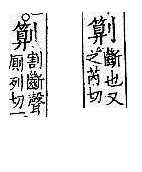 斷也又
之芮切
割斷聲
厠列切一